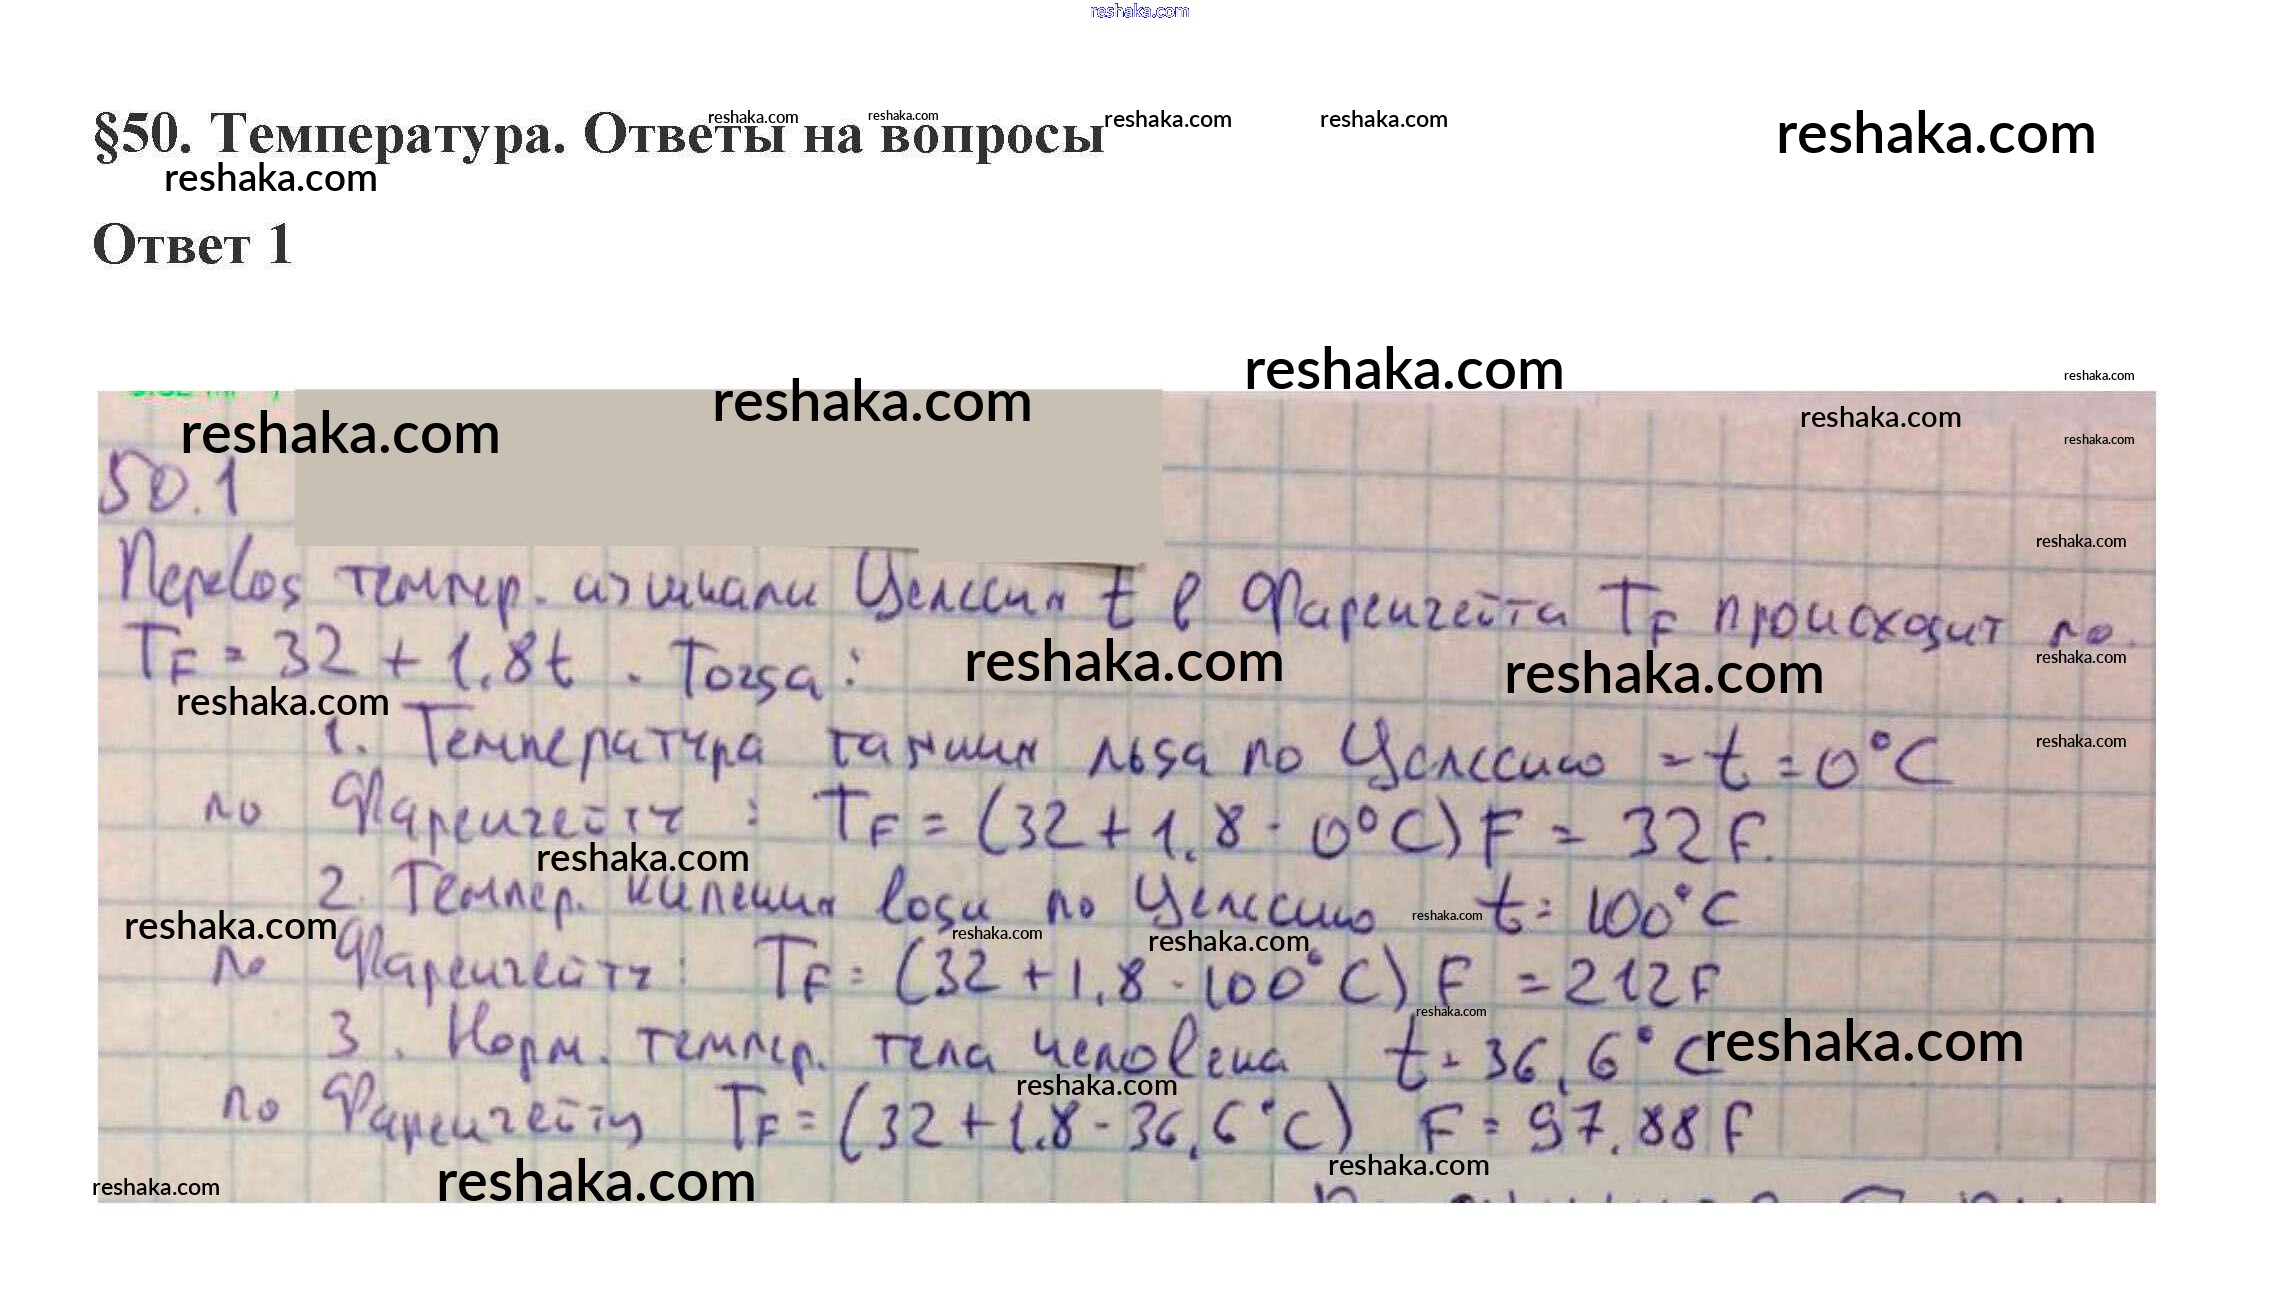 reshaka.com
§50. Температура. Ответы на вопросы
reshaka.com reshaka.com reshaka.com reshaka.com reshaka.com
reshaka.com
Ответ 1
reshaka.com
reshaka.com
reshaka.com reshaka.com reshaka.com
reshaka.com
50.1
reshaka.com
Перевод темпер. из шкали Цельсия t в Фаренгейта T_F происходит по
T_F = 32 + 1.8t. Тогда:
reshaka.com reshaka.com reshaka.com
reshaka.com
1. Температура таяния льда по Цельсию – t = 0°C
reshaka.com
по Фаренгейту : T_F = (32 + 1.8 · 0°C) F = 32 F.
reshaka.com
2. Темпер. кипения воды по Цельсию t = 100°C
reshaka.com reshaka.com reshaka.com reshaka.com
по Фаренгейту: T_F = (32 + 1.8 · 100°C) F = 212 F
reshaka.com
3. Норм. темпер. тела человека t = 36,6°C
reshaka.com
reshaka.com
по Фаренгейту T_F = (32 + 1.8 · 36,6°C) F = 97.88 F
reshaka.com reshaka.com reshaka.com